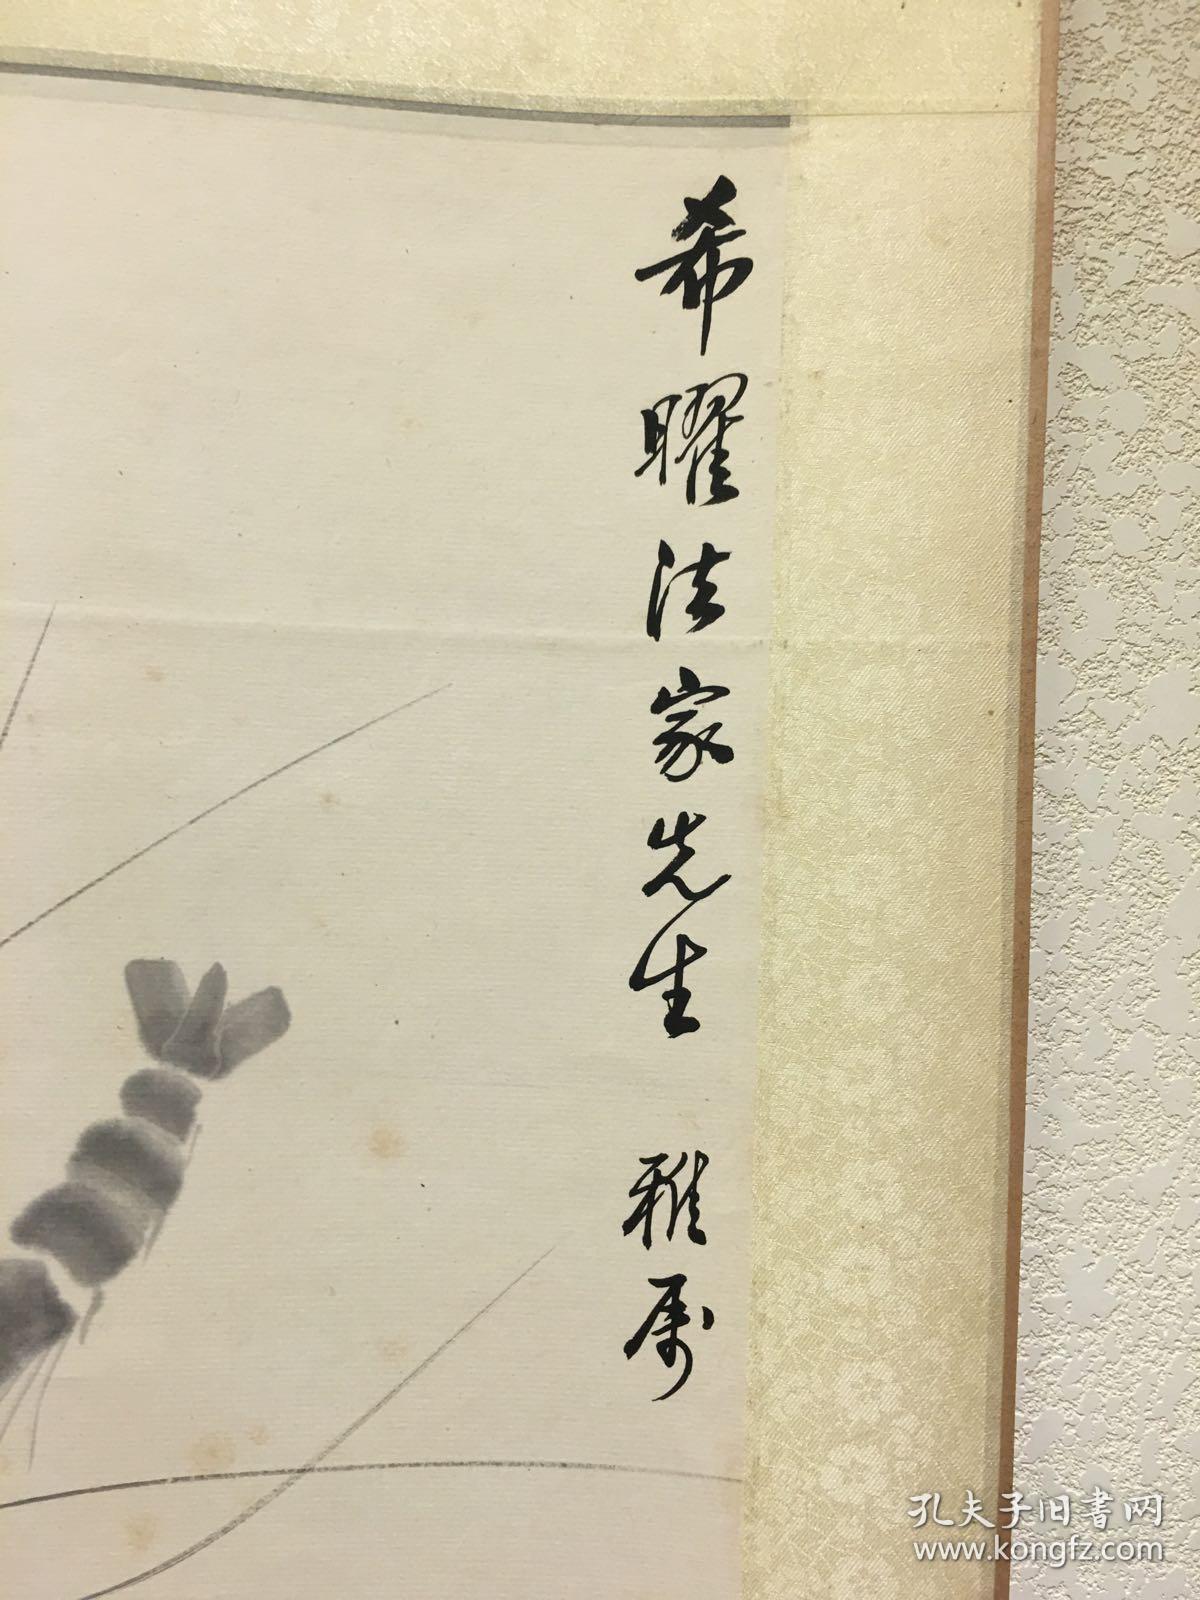 希曜法家先生 雅属
孔夫子旧書网
www.kongfz.com